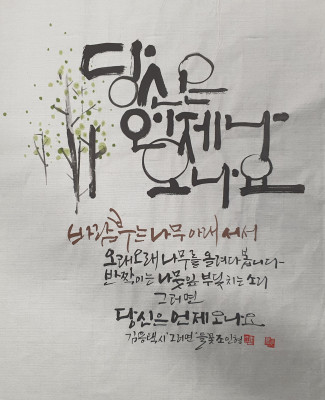 당신은
언제나
오나요
바람부는 나무 아래에서
오래오래 나무를 올려다봅니다
반짝이는 나뭇잎 부딪치는 소리
그러면
당신은 언제 오나요
김용택 시 '그러면' 들꽃 조인형